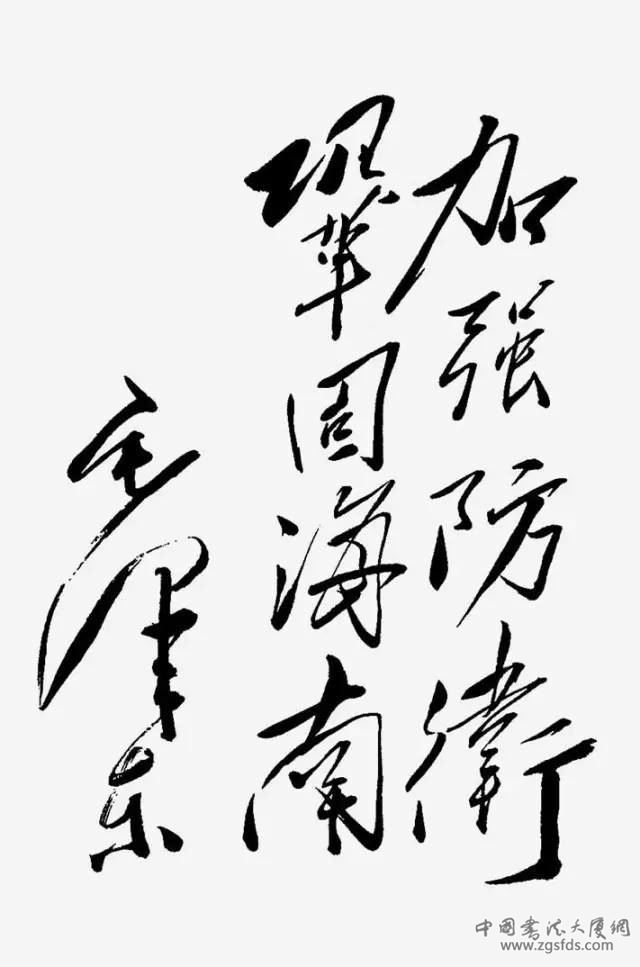 加强防衛
鞏固海南
毛泽东
中国书法大厦網
www.zgsfds.com